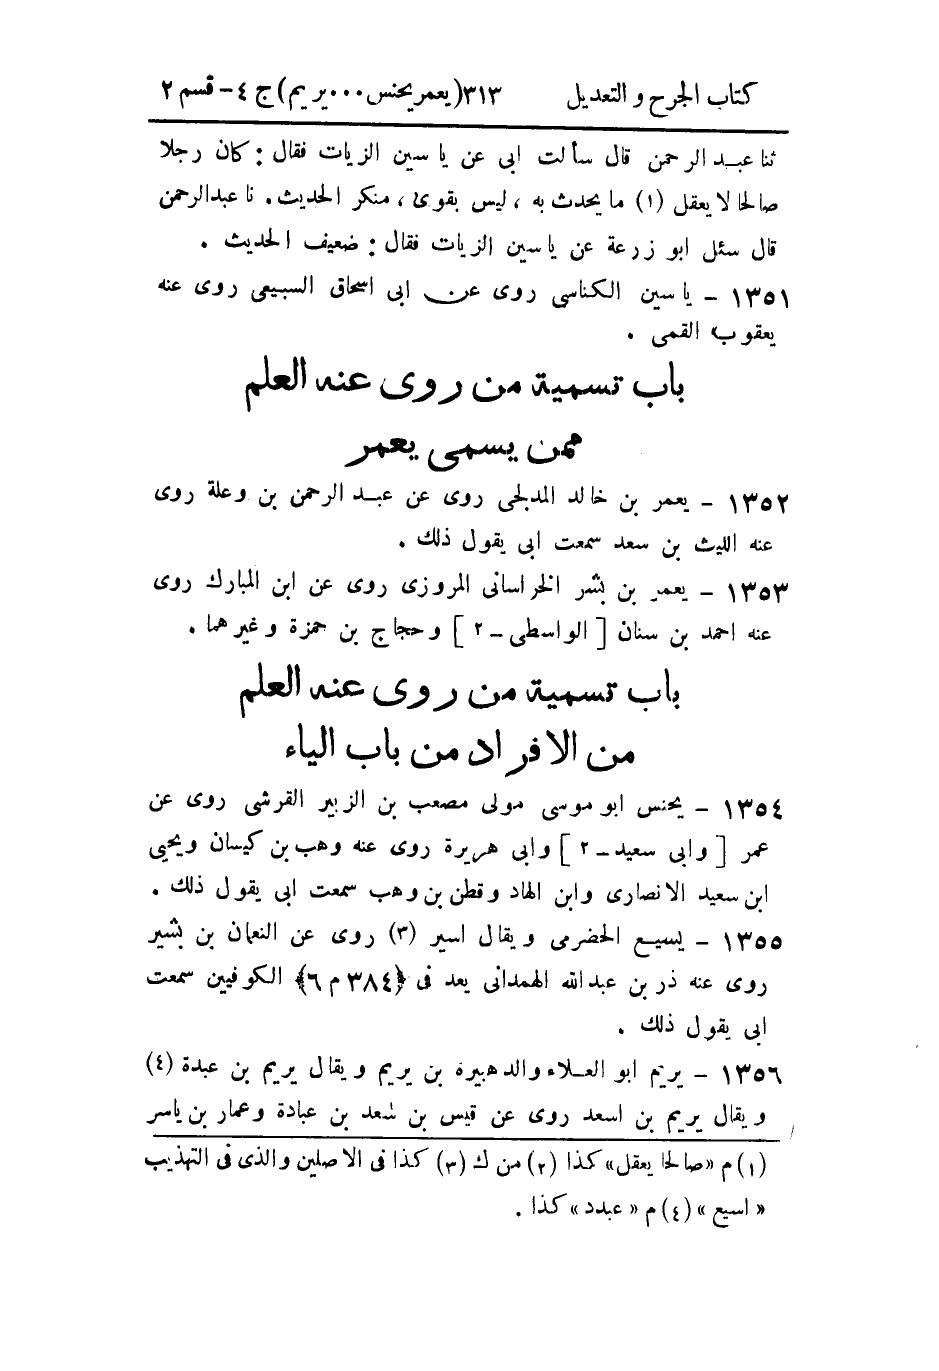 كتاب الجرح و التعديل ٣١٣ (يعمر يحنس ٠٠٠ يريم) ج ٤ - قسم ٢
ثنا عبد الرحمن قال سألت ابى عن ياسين الزيات فقال : كان رجلا
صالحا لا يعقل (١) ما يحدث به ، ليس بقوى ، منكر الحديث . نا عبد الرحمن
قال سئل ابو زرعة عن ياسين الزيات فقال : ضعيف الحديث .
١٣٥١ - ياسين الكناسى روى عن ابى اسحاق السبيعى روى عنه
يعقوب القمى .
باب تسمية من روى عنه العلم
ممن يسمى يعمر
١٣٥٢ - يعمر بن خالد المدلجى روى عن عبد الرحمن بن وعلة روى
عنه الليث بن سعد سمعت ابى يقول ذلك .
١٣٥٣ - يعمر بن بشر الخراسانى المروزى روى عن ابن المبارك روى
عنه احمد بن سنان [ الواسطى - ٢ ] وحجاج بن حمزة و غيرهما .
باب تسمية من روى عنه العلم
من الافراد من باب الياء
١٣٥٤ - يحنس ابو موسى مولى مصعب بن الزبير القرشى روى عن
عمر [ وابى سعيد - ٢ ] وابى هريرة روى عنه وهب بن كيسان ويحيى
ابن سعيد الانصارى وابن الهاد وقطن بن وهب سمعت ابى يقول ذلك .
١٣٥٥ - يسيع الحضرمى ويقال اسير (٣) روى عن النعمان بن بشير
روى عنه ذر بن عبد الله الهمدانى يعد فى ﴿٣٨٤ م ٦﴾ الكوفيين سمعت
ابى يقول ذلك .
١٣٥٦ - يريم ابو العلاء والد هبيرة بن يريم ويقال يريم بن عبدة (٤)
ويقال يريم بن اسعد روى عن قيس بن سعد بن عبادة وعمار بن ياسر
(١) م «صالحا يعقل» كذا (٢) من ك (٣) كذا فى الاصلين والذى فى التهذيب
« اسيع » (٤) م « عبدد » كذا .